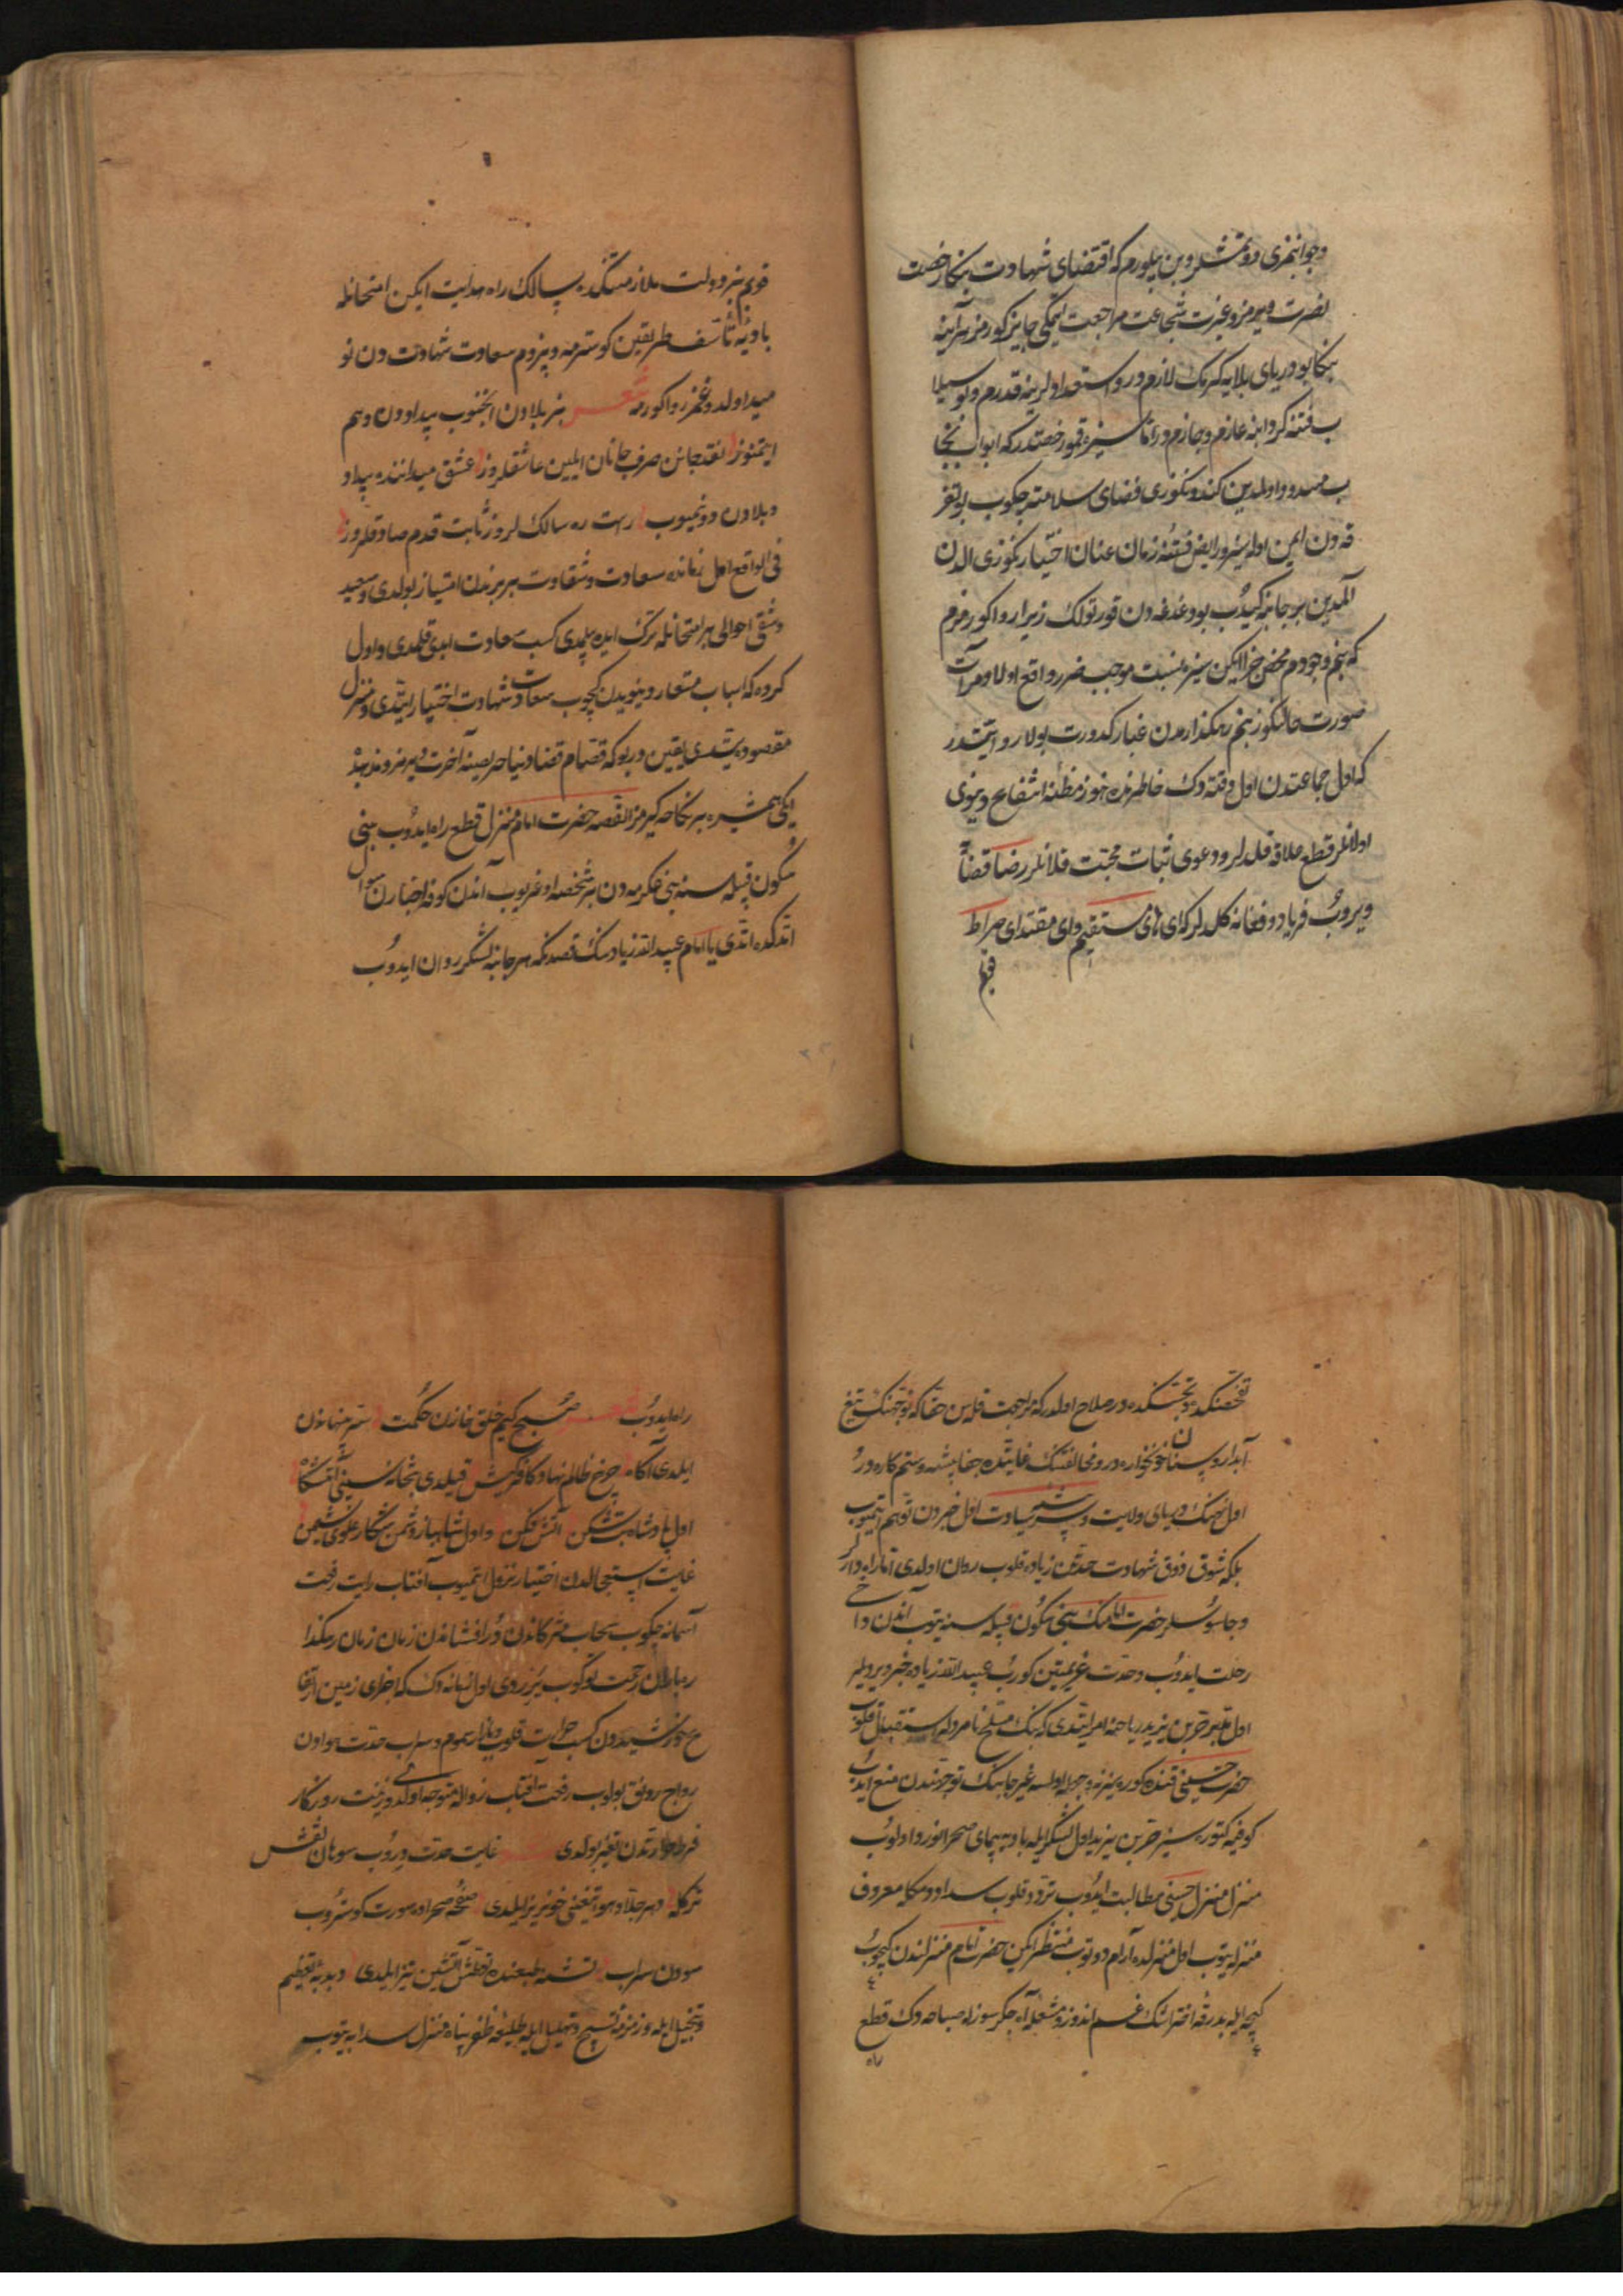 وجوانمزی دونمشلر وبن بیلورم که اقتضای شهادت بنکا رخصت
نصرت ویرمز وغیرت شجاعت مراجعت ایتمکی جایز کورمز هرآینه
بنکا بو دریای بلایه کیرمک لازمدر و استعداد لرینه قدرم ولو سیلا
ب فتنه کردابنه عازم وجازم در اما سیزه قمو رخصتدر که ابواب نجا
ب مسدود اولمدین کندونکوزی فضای سلامته چکوب بو تفر
قه دن ایمن اوله سیز ورابض فتنهٔ زمان عنان اختیارنکوزی الدن
آلمدین بر جانبه کیدُب بو دغدغه دن قورتولک زیرا روا کورمزم
که بنم وجودم محض خیر ایکن سیزه نسبت موجب ضرر واقع اولا ومرآت
صورت حالنکوز بنم رهکذارمدن غبار کدورت بولا روایتدر
که اول جماعتدن اول وقته دک خاطرنده هنوز مظنهٔ انتفاع دنیوی
اولانلر قطع علاقه قلدلر ودعوی ثبات محبت قلانلر رضا قضاآ
ویروبُ فریاد وفغانه کلدلر که ای هادی مستقیم وای مقتدای صراط
قویم
قویم بز دولت ملازمتکده سالک راه هدایت ایکن امتحانله
بادیهٔ تأسف طریقین کوسترمه وبزوم سعادت شهادت دن نو
مید اولدوغمز روا کورمه شعر بز بلادن اجتنوب بیداددن وهم
ایتمنوز نقد جانن صرف جانان ایلین عاشقلروز عشق میداننده بیداد
وبلادن دونمیوب راست ره سالک لروز ثابت قدم صادقلروز
فی الواقع اهل زمانه سعادت وشقاوت بربرندن امتیاز بولدی وسعید
وشقی احوالی بر امتحانله ترک ایده بیلمدی کسب سعادت ابدی قلمدی واول
کروه که اسباب مستعار دنیویدن کچوب سعادت شهادت اختیار ایتدی ومنزل
مقصوده یتشدی یقین در بو که قسام قضا دنیا حریصینه آخرت ویرمز ومذهبده
ایکی همشیره بر نکاحه کیرمز القصه حضرت امام منزل قطع راه ایدُوب بنی
سکون قبیله سنه بنی عکرمه دن بر شخصه اوغریوب آندن کوفه اخبارن سوال
اتدکده اتدی یا امام عبید الله زیاد سنک قصدنکه هر جانبه لشکر روان ایدوُب
تفحصنکده وتجسسکده در صلاح اولدر که مراجعت قله سن حقا که توجهنک تیغ
آبدار وسنان خونخواره در ومخالفتنک غایتده جفا پیشه وستم کاره درُ
اول نهنک دریای ولایت وشیر بیشه سیادت اول خبردن توهم ایتمیوب
بلکه شوق ذوق شهادت حدتن زیاده قلوب روان اولدی اما راه دارلر
وجاسوسلر حضرت امامک بنی سکون قبیله سنه یتوب آندن داخی
رحلت ایدوُب وحدت عزیمتین کورُب عبید الله زیاده خبر ویردیلر
اول مدبر حرین یزید ریاحیه امر ایتدی که بنک مسلح نامرد ایله استقبال قلوب
حضرت حسینی قنده کوره سز نه وجهله اولسه غیر جانبک توجهندن منع ایدوبُ
کوفیه کتوره سیز حرین یزید اول لشکر ایله بادیه پیمای صحرانورد اولوبُ
منزل منزل حسینی مطالبت ایدُوب تردد قلوب سدادومکله معروف
منزله یتوب اول منزلده آرام دوتوب منتظر ایکن حضرت امام منزلندن کچوبُ
کیجه ایله بدرقهٔ اختر اشک غم اندوز ومشعلهٔ آه جکر سوز له صباحه دک قطع
راه
راه ایدوُب شعر صبح کیم خلق خازن حکمت سرّ پنهاندن
ایلدی آکاه چرخ ظالم نهاد وکافر کیش قیلدی بتخانه سینی آتشکاه
اول پادشاه بت شکن آتش فکن واول شاهباز دشمن شکار علوی نشیمن
غایت استعجالدن اختیار نزول ایتمیوب آفتاب رایت رفعت
آسمانه چکوب سحاب مژکاندن دُر افشاندن زمان زمان رهکذا
ره باران رحمت توکوب یُزردی اول زمانه دک که اجزای زمین ارتفا
ع خورشیددن کسب حرارت قلوب وبازار سموم وسراب حدت هوادن
رواج رونق بولوب رفعت آفتاب زواله متوجه اولدی وزینت روزکار
فرط حرارتدن تغیر بولدی شعر غایت حدت وروُب سوهان نقش
ترکله دهر جلاد هوا تیغنی خونریز ایلدی صفحهٔ صحراده صورت کوستروُب
سودن سراب تشنه طبعنده تعطش آتشین تیز ایلدی دبدبهٔ تعظیم
وتبجیل ایله وزمزمهٔ تسبیح وتهلیل ایله طلیعهٔ ظفر پناه منزل سدابه یتوب